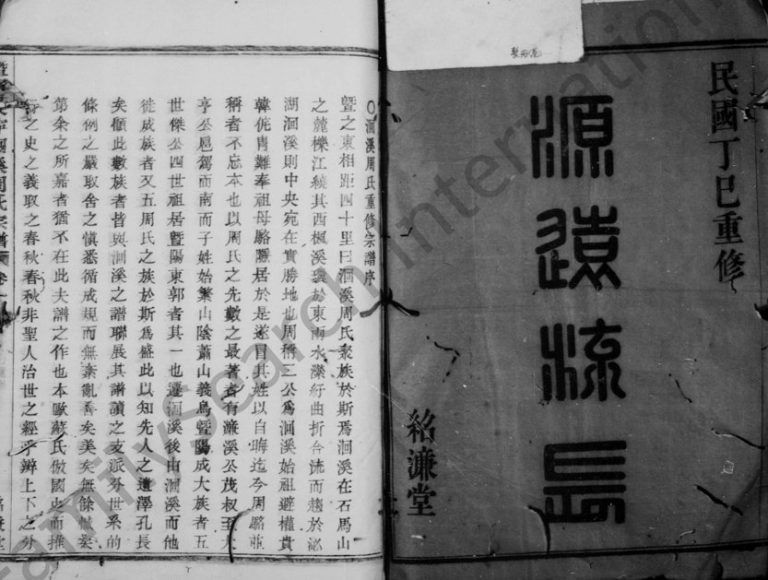 民國丁巳重修
源遠流長
紹濂堂
〇洄溪周氏重修宗譜序
暨之東相距四十里曰洄溪周氏聚族於斯焉洄溪在石馬山
之麓櫟江繞其西楓溪環於東兩水瀠紆曲折合流而趨於泌
湖洄溪則中央宛在實勝地也周稱三公爲洄溪始祖避權貴
韓侂胄難奉祖母駱隱居於是遂冒其姓以自晦迄今周駱並
稱者不忘本也以周氏之先數之最著者有濂溪公茂叔至
亨公扈駕而南而子姓始繁山陰蕭山義烏暨陽成大族者五
世傑公四世祖居暨陽東郭者其一也遷洄溪後由洄溪而他
徙成族者又五周氏之族於斯爲盛此以知先人之遺澤孔長
矣顧此數族者皆與洄溪之譜聯展其譜讀之支派分世系的
條例之嚴取舍之慎悉循成規而無紊亂善矣美矣無餘憾矣
第余之所嘉者猶不在此夫譜之作也本歐蘇氏倣國史而推
春之史之義取之春秋春秋非聖人治世之經乎辨上下之分
洄溪周氏宗譜 卷一
FamilySearch International